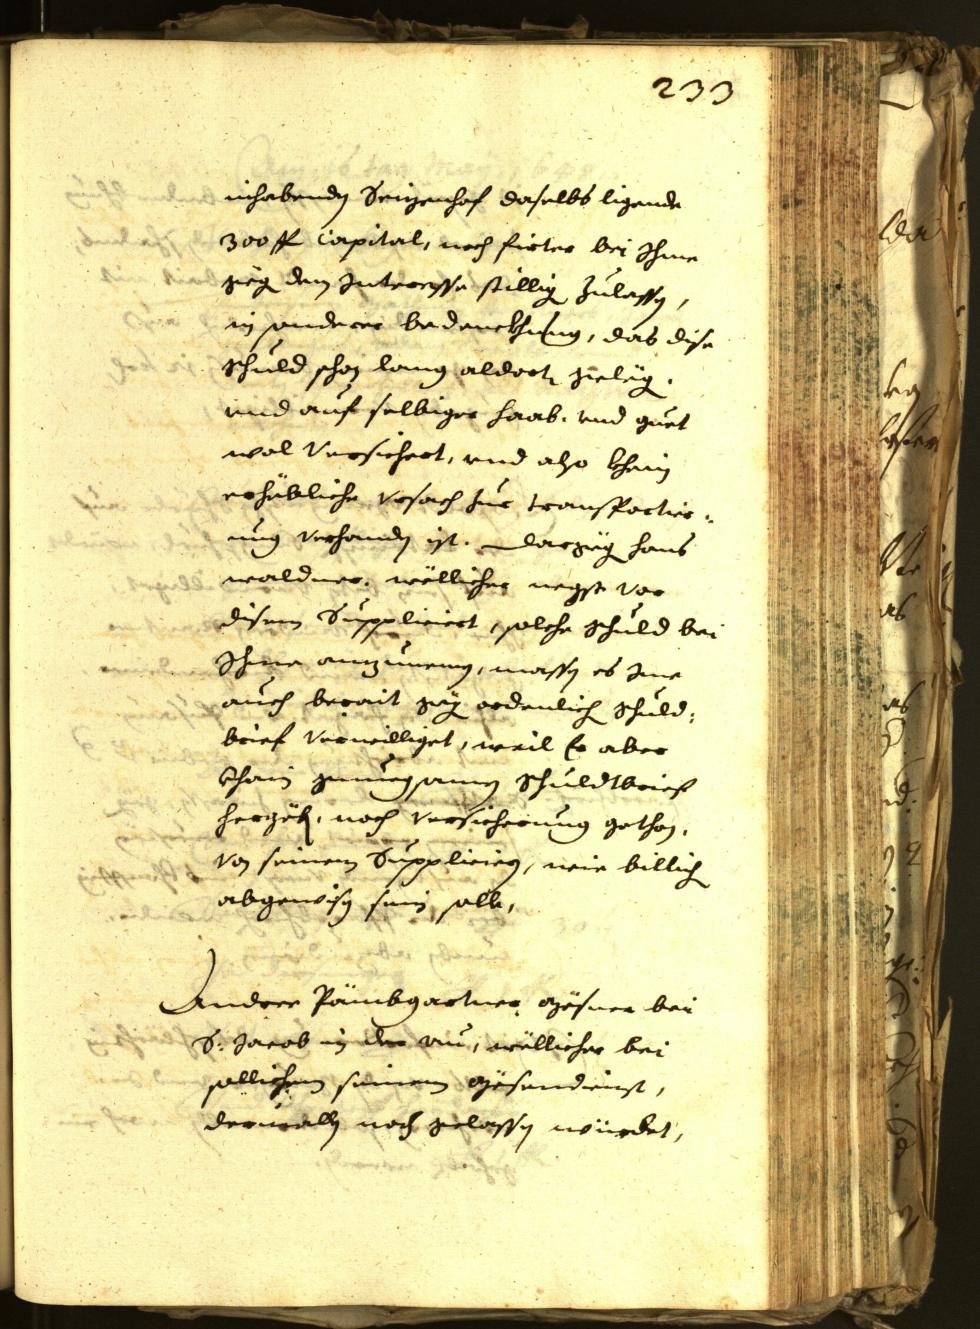 233
inhabenden Seizenhof daselbs ligende
300 fl Capital, noch firter bei Ihme
gegen dem Interesse stillig zulassen,
in sonderer bedenckhung, das dise
schuld schon lang aldort gelegen,
und auf selbiger haab und guet
wol versichert, und also khain
erhebliche ursach zur transportier:
ung verhanden ist. Dargegen hans
waldner, wellicher negst vor
disem Suppliciert, solche schuld bei
Ihme anzunemen, massen es Ime
auch berait gegen ordenlich schuld:
brief verwilliget, weil Er aber
khain genuegsamen schuldtbrief
hergeben, noch versicherung gethon,
von seinem Supplicieren, wie billich
abgewisen sein solle,
Andree Päumbgartner Mesner bei
S: Jacob in der au, wellicher bei
sollichem seinem Mesnerdienst,
dermalen noch gelassen würdet,